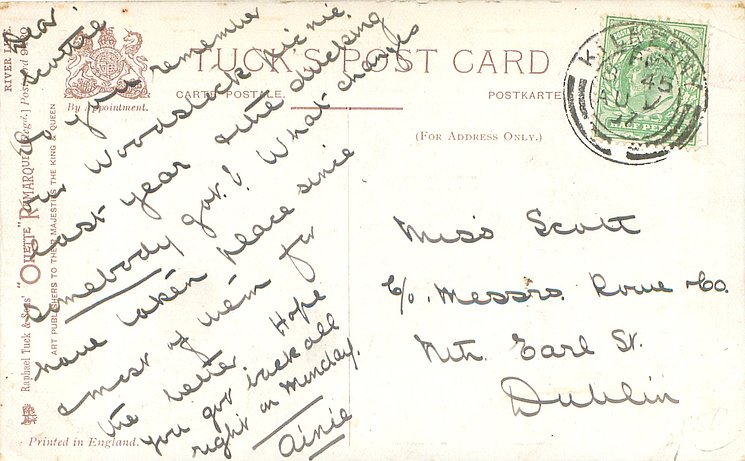 TUCK'S POST CARD
CARTE POSTALE.
POSTKARTE
(FOR ADDRESS ONLY.)
By Appointment.
RIVER LIFE
Raphael Tuck & Sons' "OILETTE" [Regd.] Postcard
ART PUBLISHERS TO THEIR MAJESTIES THE KING & QUEEN
Printed in England.
Dear
Scottie
Do you remember
our Woodstock picnic
last year & the ducking
Somebody got!! What changes
have taken place since
most of them for
the better Hope
you got back all
right on Monday.
Ainie
Miss Scott
C/o. Messrs Rowe & Co.
Nth. Earl St.
Dublin
KILKENNY